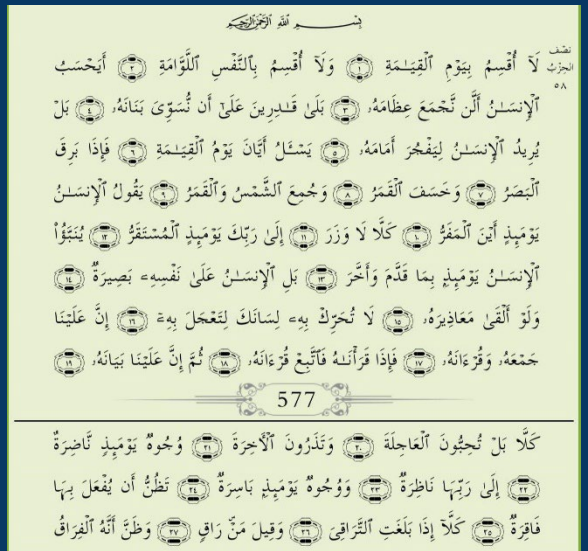 بِسْمِ ٱللَّهِ ٱلرَّحْمَٰنِ ٱلرَّحِيمِ
نصف الحزب ٥٨
لَآ أُقْسِمُ بِيَوْمِ ٱلْقِيَـٰمَةِ ١ وَلَآ أُقْسِمُ بِٱلنَّفْسِ ٱللَّوَّامَةِ ٢ أَيَحْسَبُ
ٱلْإِنسَـٰنُ أَلَّن نَّجْمَعَ عِظَامَهُۥ ٣ بَلَىٰ قَـٰدِرِينَ عَلَىٰٓ أَن نُّسَوِّىَ بَنَانَهُۥ ٤ بَلْ
يُرِيدُ ٱلْإِنسَـٰنُ لِيَفْجُرَ أَمَامَهُۥ ٥ يَسْـَٔلُ أَيَّانَ يَوْمُ ٱلْقِيَـٰمَةِ ٦ فَإِذَا بَرِقَ
ٱلْبَصَرُ ٧ وَخَسَفَ ٱلْقَمَرُ ٨ وَجُمِعَ ٱلشَّمْسُ وَٱلْقَمَرُ ٩ يَقُولُ ٱلْإِنسَـٰنُ
يَوْمَئِذٍ أَيْنَ ٱلْمَفَرُّ ١٠ كَلَّا لَا وَزَرَ ١١ إِلَىٰ رَبِّكَ يَوْمَئِذٍ ٱلْمُسْتَقَرُّ ١٢ يُنَبَّؤُا۟
ٱلْإِنسَـٰنُ يَوْمَئِذٍۭ بِمَا قَدَّمَ وَأَخَّرَ ١٣ بَلِ ٱلْإِنسَـٰنُ عَلَىٰ نَفْسِهِۦ بَصِيرَةٌ ١٤
وَلَوْ أَلْقَىٰ مَعَاذِيرَهُۥ ١٥ لَا تُحَرِّكْ بِهِۦ لِسَانَكَ لِتَعْجَلَ بِهِۦٓ ١٦ إِنَّ عَلَيْنَا
جَمْعَهُۥ وَقُرْءَانَهُۥ ١٧ فَإِذَا قَرَأْنَـٰهُ فَٱتَّبِعْ قُرْءَانَهُۥ ١٨ ثُمَّ إِنَّ عَلَيْنَا بَيَانَهُۥ ١٩
577
كَلَّا بَلْ تُحِبُّونَ ٱلْعَاجِلَةَ ٢٠ وَتَذَرُونَ ٱلْـَٔاخِرَةَ ٢١ وُجُوهٌ يَوْمَئِذٍ نَّاضِرَةٌ
٢٢ إِلَىٰ رَبِّهَا نَاظِرَةٌ ٢٣ وَوُجُوهٌ يَوْمَئِذٍۭ بَاسِرَةٌ ٢٤ تَظُنُّ أَن يُفْعَلَ بِهَا
فَاقِرَةٌ ٢٥ كَلَّآ إِذَا بَلَغَتِ ٱلتَّرَاقِىَ ٢٦ وَقِيلَ مَنْ رَاقٍ ٢٧ وَظَنَّ أَنَّهُ ٱلْفِرَاقُ